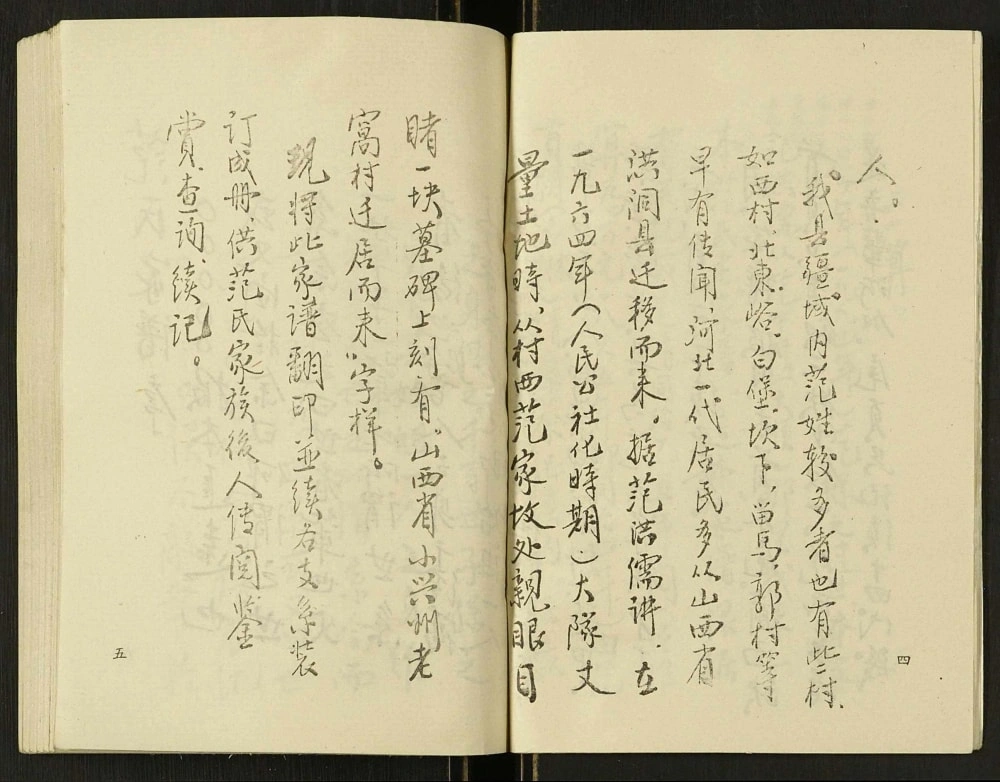 人。
我县疆域内范姓较多者也有些村.
如西村.北東峪.白堡.坎下,畄馬.郭村等村
早有传闻,河北一代居民多从山西省
洪洞县迁移而来。据范洪儒讲.在
一九六四年(人民公社化時期)大隊丈
量土地時、从村西范家坟处親眼目
四
睹一块墓碑上刻有"山西省小兴州老
窩村迁居而来"字样。
現将此家譜翻印並續各支系装
订成册.供范氏家族後人传阅鉴
賞.查询.續记。
五